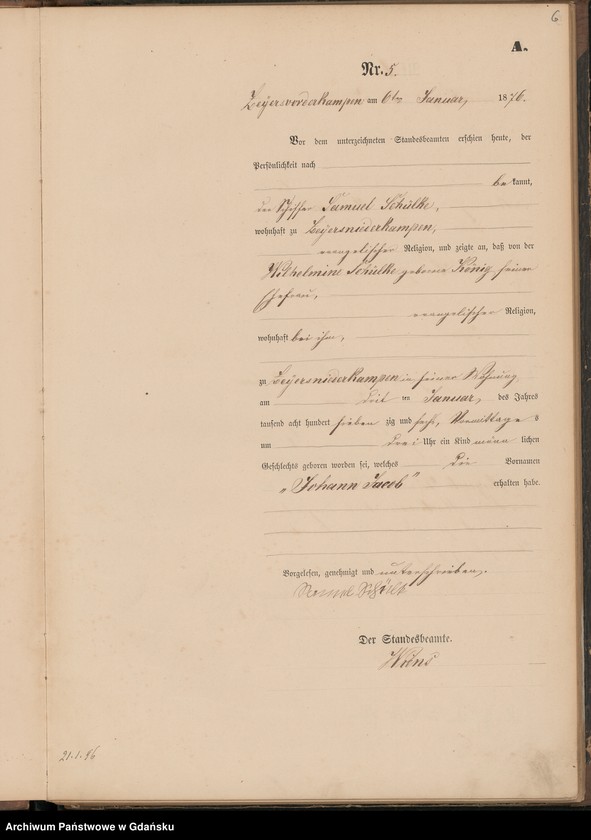 6
A.
Nr. 5.
Zeyersvorderkampen am 6ten Januar, 1876.
Vor dem unterzeichneten Standesbeamten erschien heute, der
Persönlichkeit nach
bekannt,
der Schiffer Samuel Schülke,
wohnhaft zu Zeyersniederkampen,
evangelischer Religion, und zeigte an, daß von der
Wilhelmine Schülke geborne König seiner
Ehefrau,
evangelischer Religion,
wohnhaft bei ihm,
zu Zeyersniederkampen in seiner Wohnung
am drit ten Januar, des Jahres
tausend acht hundert sieben zig und sechs, Vormittags
um drei Uhr ein Kind männ lichen
Geschlechts geboren worden sei, welches die Vornamen
„Johann Jacob" erhalten habe.
Vorgelesen, genehmigt und unterschrieben.
Der Standesbeamte.
21.1.96
Archiwum Państwowe w Gdańsku